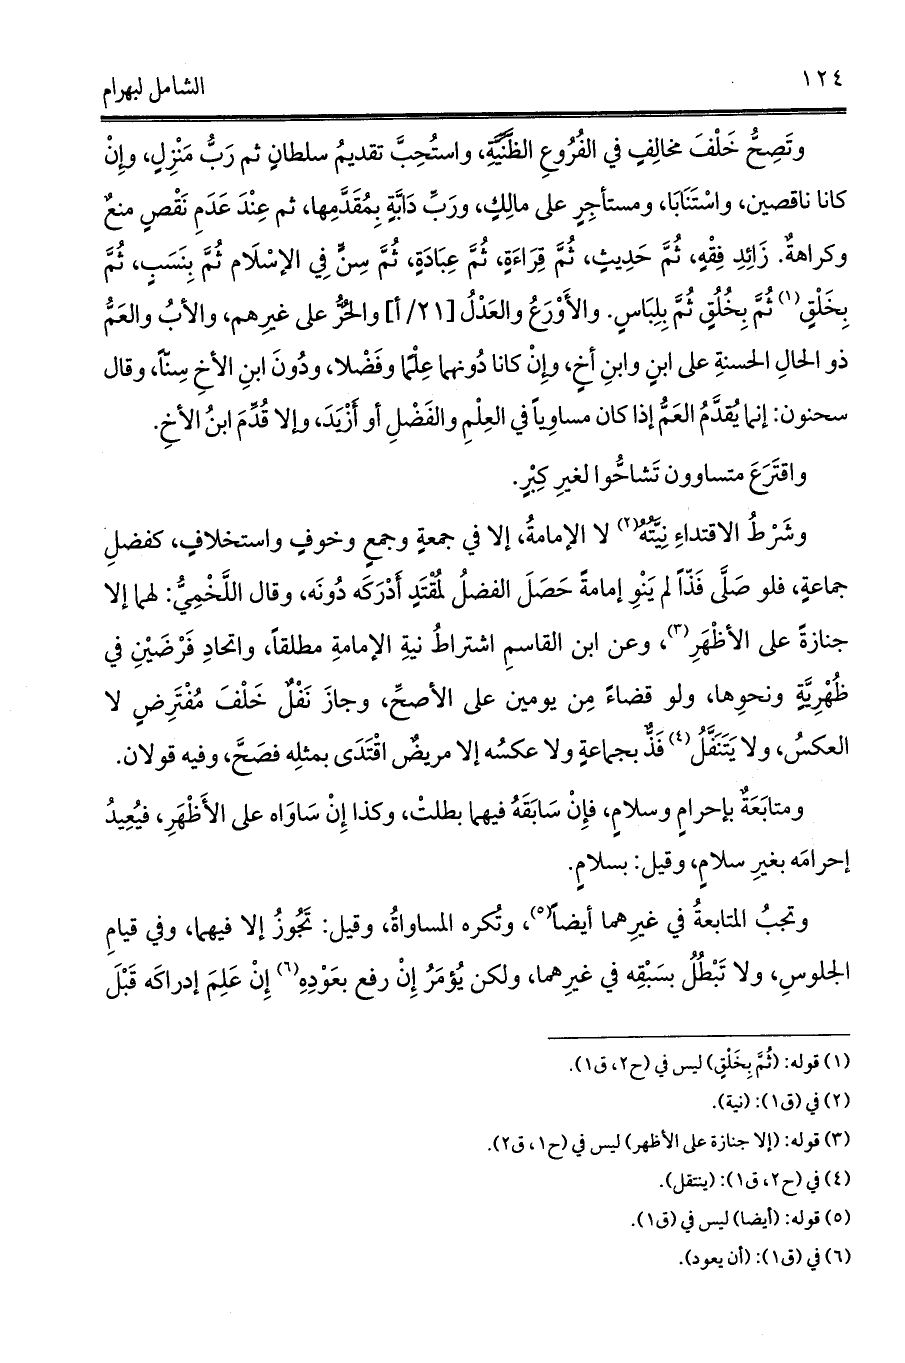 ١٢٤
الشامل لبهرام
وتَصِحُّ خَلْفَ مخالِفٍ في الفُرُوعِ الظَّنِّيَّةِ، واستُحِبَّ تقديمُ سلطانٍ ثم رَبُّ مَنْزِلٍ، وإِنْ
كانا ناقصين، واسْتَنَابَا، ومستأجِرٍ على مالِكٍ، ورَبِّ دَابَّةٍ بِمُقَدَّمِها، ثم عِنْدَ عَدَمِ نَقْصِ منعٌ
وكراهةٌ. زَائِدِ فِقْهٍ، ثُمَّ حَدِيثٍ، ثُمَّ قِرَاءَةٍ، ثُمَّ عِبَادَةٍ، ثُمَّ سِنٍّ فِي الإِسْلَام ثُمَّ بِنَسَبٍ، ثُمَّ
بِخَلْقٍ(١) ثُمَّ بِخُلُقٍ ثُمَّ بِلِبَاسٍ. والأَوْرَعُ والعَدْلُ [٢١/ أ] والحُرُّ على غيرِهم، والأبُ والعَمُّ
ذو الحالِ الحسنةِ على ابنٍ وابنِ أخٍ، وإِنْ كانا دُونهما عِلْمًا وفَضْلا، ودُونَ ابنِ الأخِ سِنّاً، وقال
سحنون: إنما يُقدَّمُ العَمُّ إذا كان مساوِياً في العِلْمِ والفَضْلِ أو أَزْيَدَ، وإلا قُدِّمَ ابنُ الأخِ.
واقتَرَعَ متساوون تَشاحُّوا لغيرِ كِبْرٍ.
وشَرْطُ الاقتداءِ نِيَّتُهُ(٢) لا الإمامةُ، إلا في جمعةٍ وجمعٍ وخوفٍ واستخلافٍ، كفضلِ
جماعةٍ، فلو صَلَّى فَذّاً لم يَنْوِ إمامةً حَصَلَ الفضلُ لمُقْتَدٍ أَدْرَكَه دُونَه، وقال اللَّخْمِيُّ: لهما إلا
جنازةً على الأظْهَرِ(٣)، وعن ابن القاسمِ اشتراطُ نيةِ الإمامةِ مطلقاً، واتحادِ فَرْضَيْنِ في
ظُهْرِيَّةٍ ونحوِها، ولو قضاءً مِن يومين على الأصحِّ، وجازَ نَفْلٌ خَلْفَ مُفْتَرِضٍ لا
العكسُ، ولا يَتَنَفَّلُ(٤) فَذٌّ بجماعةٍ ولا عكسُه إلا مريضٌ اقْتَدَى بمثلِه فصَحَّ، وفيه قولان.
ومتابَعَةٌ بإحرامٍ وسلامٍ، فإِنْ سَابَقَهُ فيهما بطلتْ، وكذا إِنْ سَاوَاه على الأَظْهَرِ، فيُعِيدُ
إحرامَه بغيرِ سلامٍ، وقيل: بسلامٍ.
وتجبُ المتابعةُ في غيرِهما أيضاً(٥)، وتُكره المساواةُ، وقيل: تَجُوزُ إلا فيهما، وفي قيامِ
الجلوسِ، ولا تَبْطُلُ بسَبْقِه في غيرِهما، ولكن يُؤمَرُ إِنْ رفع بعَوْدِهِ(٦) إِنْ عَلِمَ إدراكَه قَبْلَ
(١) قوله: (ثُمَّ بِخَلْقٍ) ليس في (ح٢، ق١).
(٢) في (ق١): (نية).
(٣) قوله: (إلا جنازة على الأظهر) ليس في (ح١، ق٢).
(٤) في (ح٢، ق١): (ينتقل).
(٥) قوله: (أيضا) ليس في (ق١).
(٦) في (ق١): (أن يعود).